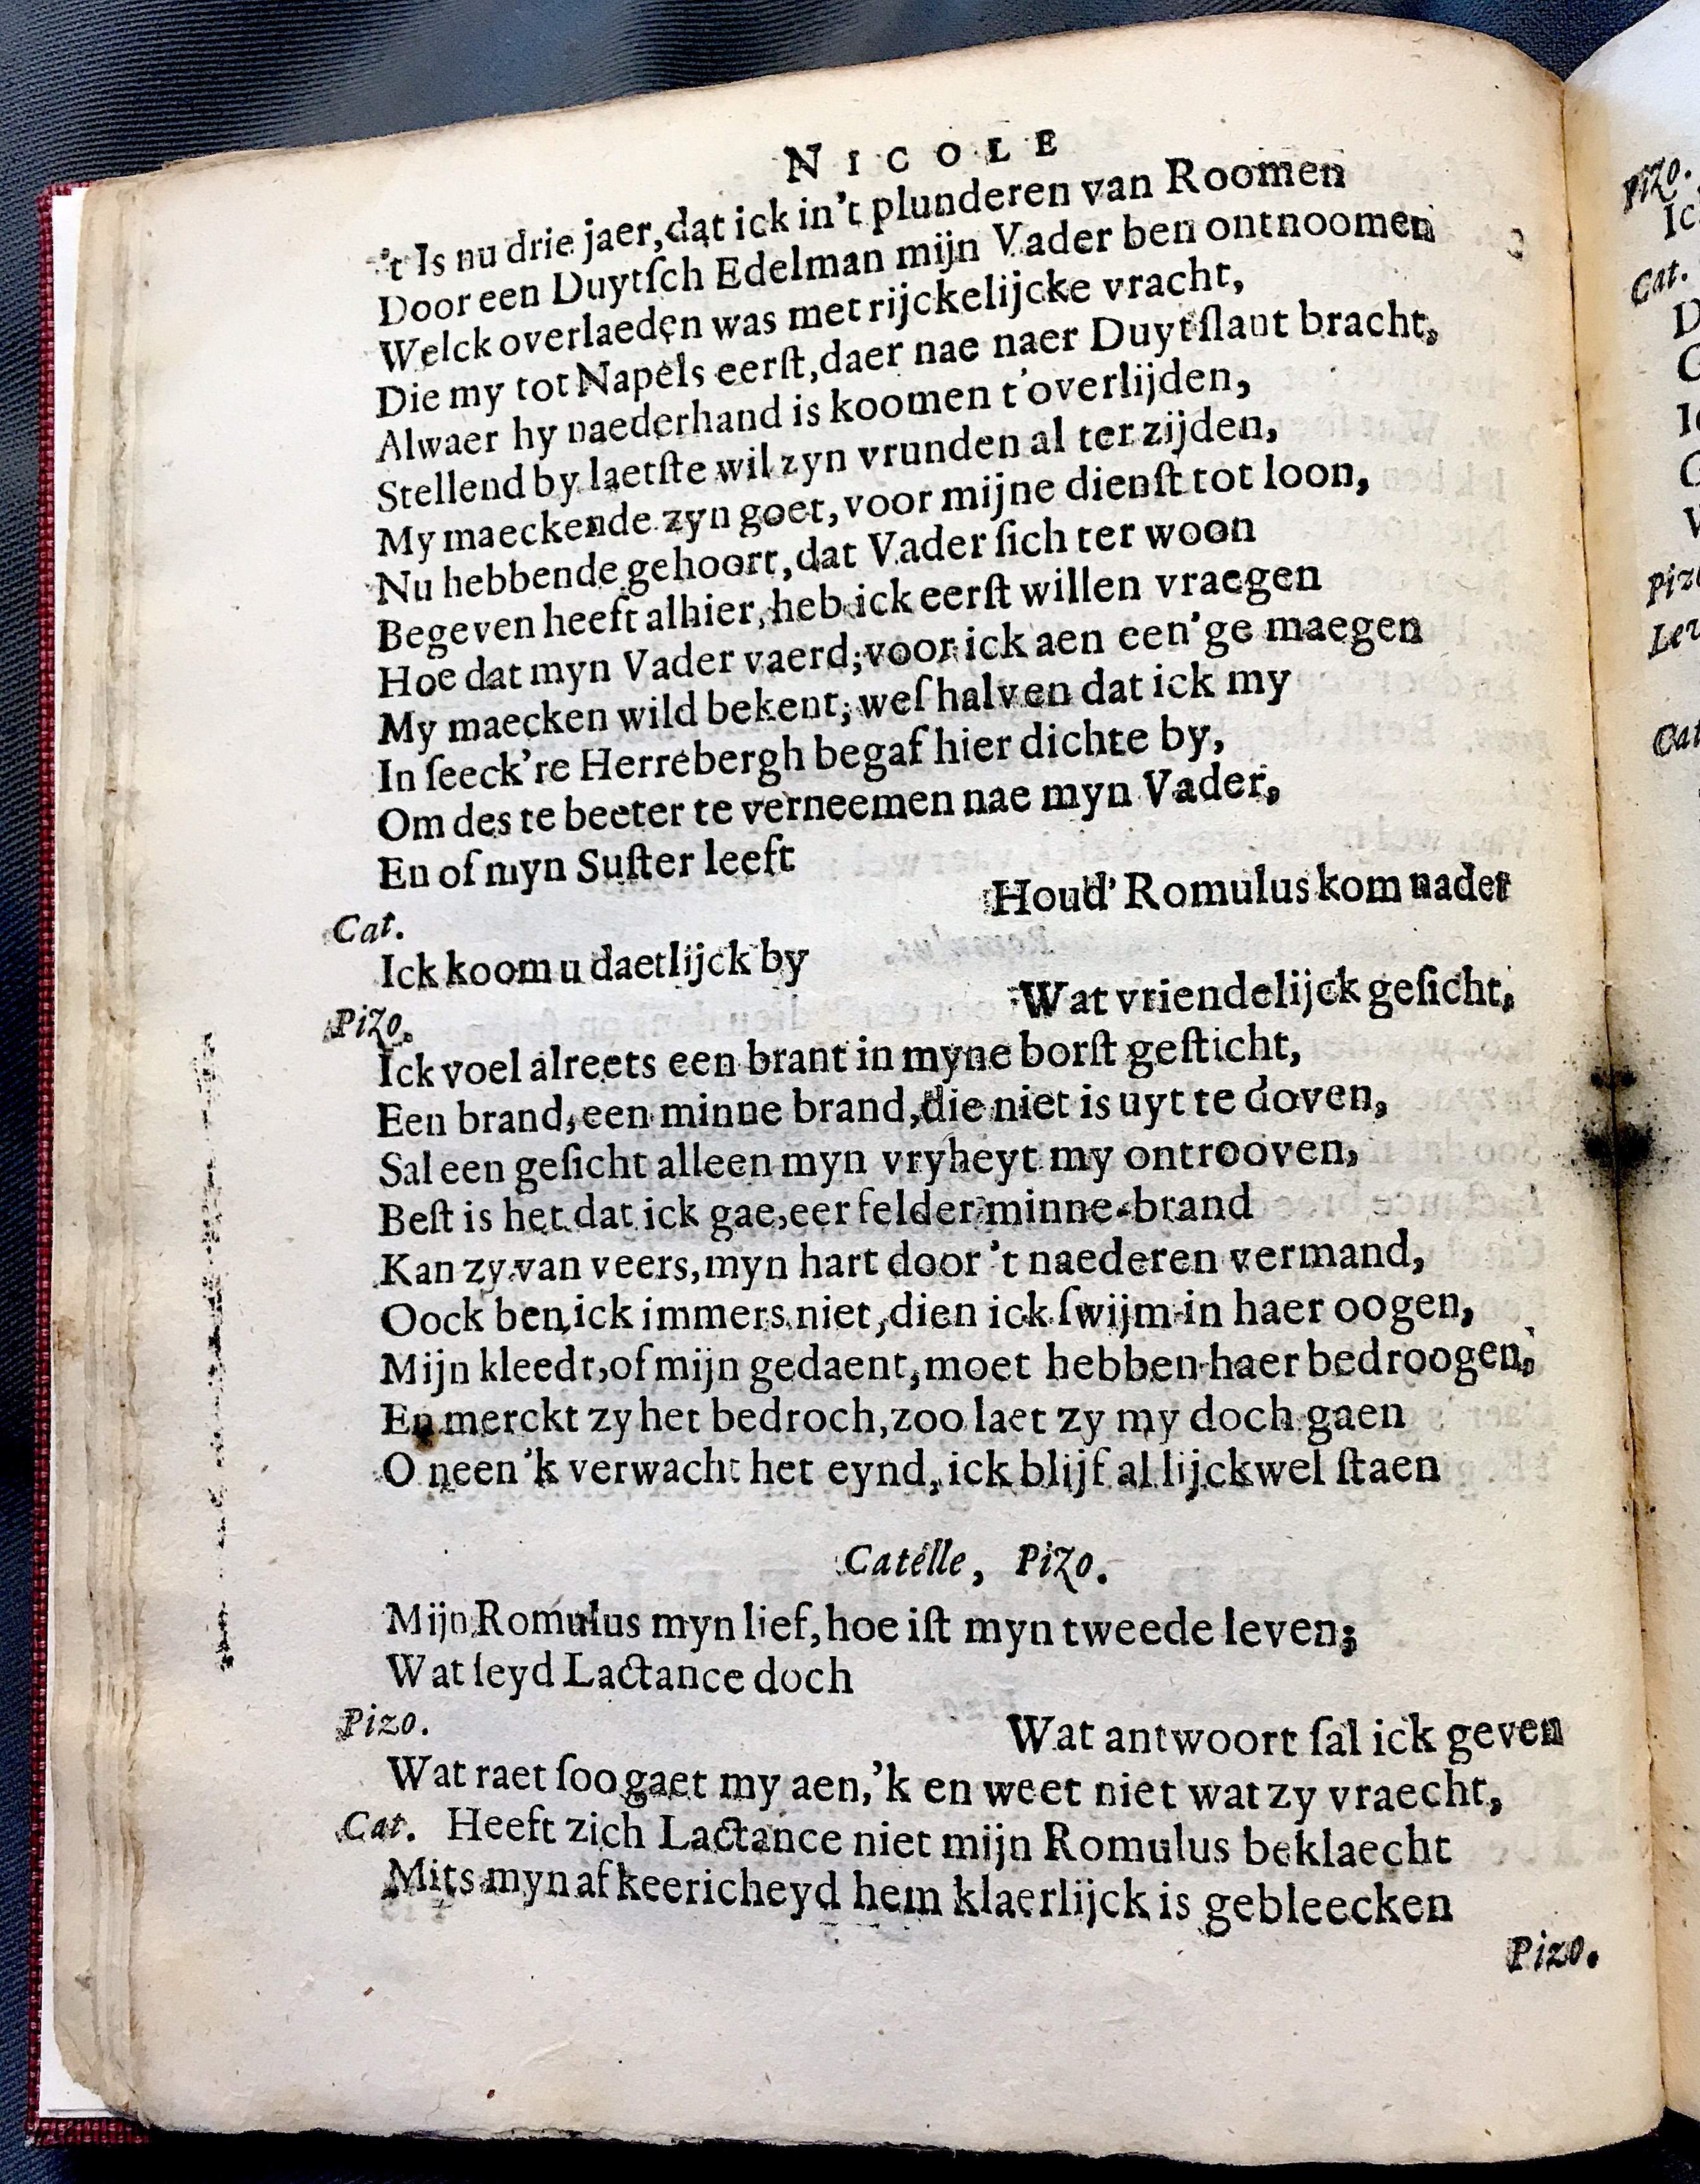 NICOLE
't Is nu drie jaer, dat ick in 't plunderen van Roomen
Door een Duytſch Edelman mijn Vader ben ontnoomen
Welck overlaeden was met rijckelijcke vracht,
Die my tot Napels eerſt, daer nae naer Duytſlant bracht,
Alwaer hy naederhand is koomen t'overlijden,
Stellend by laetſte wil zyn vrunden al ter zijden,
My maeckende zyn goet, voor mijne dienſt tot loon,
Nu hebbende gehoort, dat Vader ſich ter woon
Begeven heeft alhier, heb ick eerſt willen vraegen
Hoe dat myn Vader vaerd; voor ick aen een'ge maegen
My maecken wild bekent; weſhalven dat ick my
In ſeeck're Herrebergh begaf hier dichte by,
Om des te beeter te verneemen nae myn Vader,
En of myn Suſter leeft
Houd' Romulus kom nader
Cat.
Ick koom u daetlijck by
Wat vriendelijck geſicht,
Pizo.
Ick voel alreets een brant in myne borſt geſticht,
Een brand, een minne brand, die niet is uyt te doven,
Sal een geſicht alleen myn vryheyt my ontrooven,
Beſt is het dat ick gae, eer felder minne-brand
Kan zy van veers, myn hart door 't naederen vermand,
Oock ben ick immers niet, dien ick ſwijm in haer oogen,
Mijn kleedt, of mijn gedaent, moet hebben haer bedroogen,
En merckt zy het bedroch, zoo laet zy my doch gaen
O neen 'k verwacht het eynd, ick blijf al lijckwel ſtaen
Catelle, Pizo.
Mijn Romulus myn lief, hoe iſt myn tweede leven;
Wat ſeyd Lactance doch
Pizo.
Wat antwoort ſal ick geven
Wat raet ſoo gaet my aen, 'k en weet niet wat zy vraecht,
Cat. Heeft zich Lactance niet mijn Romulus beklaecht
Mits myn afkeericheyd hem klaerlijck is gebleecken
Pizo.